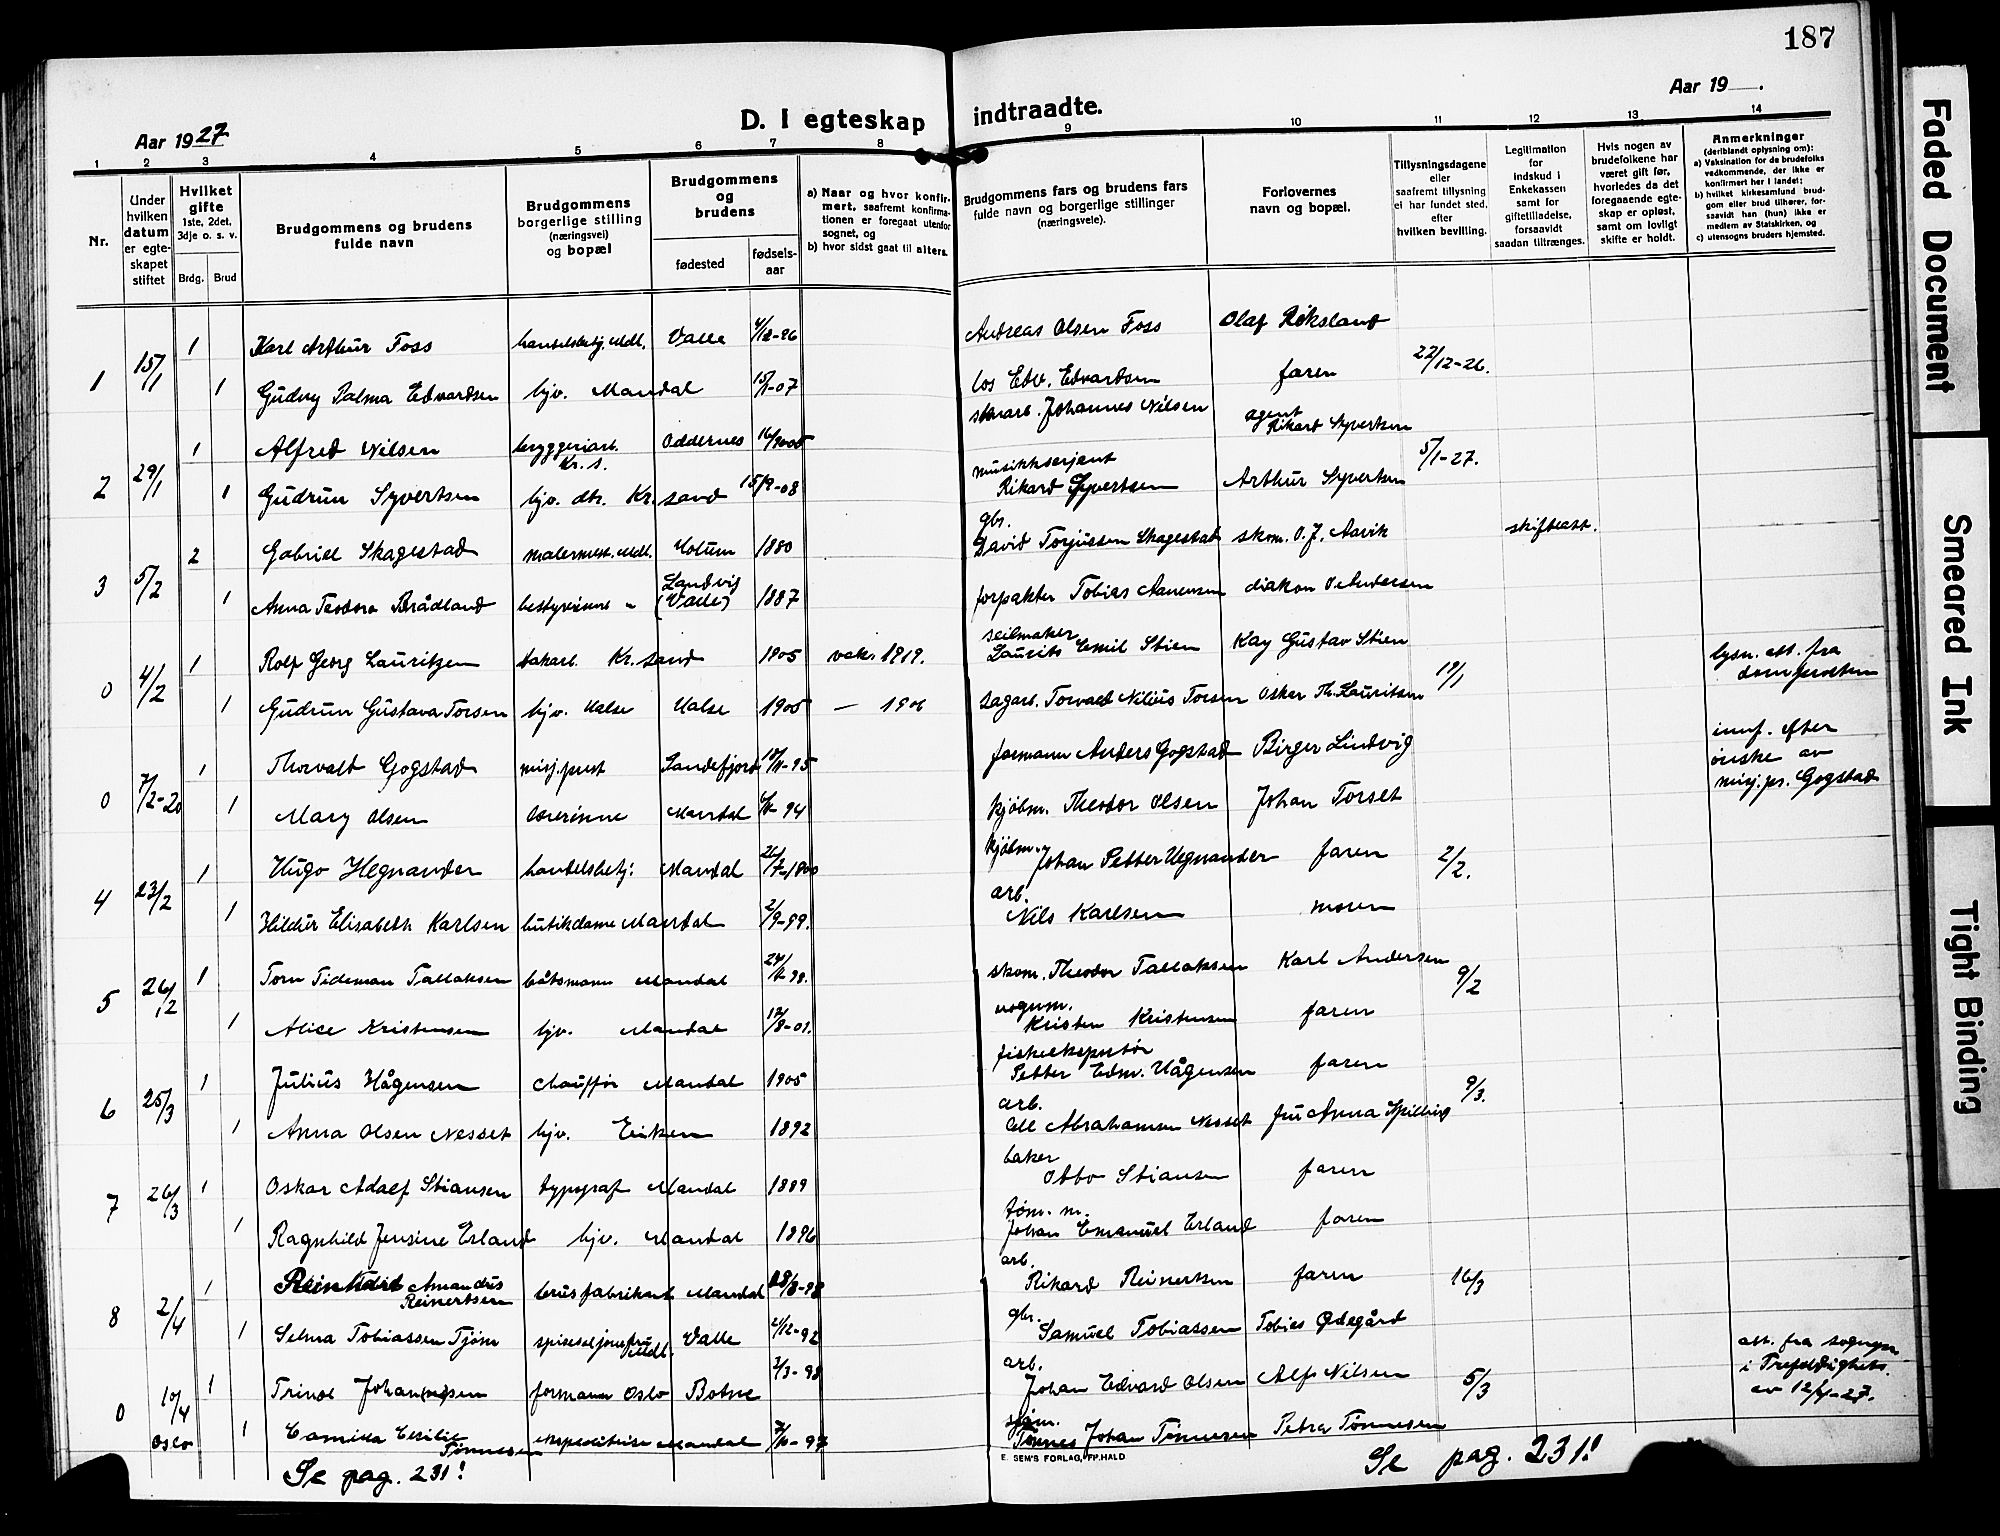 187
Aar 1927
D. I egteskap indtraadte.
Aar 19 .
1 2 3 4 5 6 7 8 9 10 11 12 13 14
Nr.
Under hvilken datum er egteskapet stiftet
Hvilket gifte
1ste, 2det, 3dje o. s. v.
Brdg. Brud
Brudgommens og brudens fulde navn
Brudgommens borgerlige stilling (næringsvei) og bopæl
Brudgommens og brudens
fødested
fødsels-aar
a) Naar og hvor konfirmert, saafremt konfirmationen er foregaat utenfor sognet, og
b) hvor sidst gaat til alters.
Brudgommens fars og brudens fars fulde navn og borgerlige stillinger (næringsveie).
Forlovernes navn og bopæl.
Tillysningsdagene eller saafremt tillysning ei har fundet sted, efter hvilken bevilling.
Legitimation for indskud i Enkekassen samt for giftetilladelse, forsaavidt saadan tiltrænges.
Hvis nogen av brudefolkene har været gift før, hvorledes da det foregaaende egteskap er opløst, samt om lovligt skifte er holdt.
Anmerkninger
(deriblandt oplysning om):
a) Vaksination for de brudefolks vedkommende, der ikke er konfirmert her i landet;
b) hvilket kirkesamfund brudgom eller brud tilhører, forsaavidt han (hun) ikke er medlem av Statskirken, og
c) utensogns bruders hjemsted.
1 15/1 1 Karl Arthur Foss handelsbetj. Mdl. Valle Andreas Olsen Foss Olaf Röksland 22/12-26.
1 Gudny Palma Edvardsen hjv. Mandal 15/1-07 los Edv. Edvardsen faren
2 29/1 1 Alfred Nilsen bryggeriarb. Kr.s. Oddernes Johannes Nilsen agent Rikard Syvertsen 5/1-27.
1 Gudrun Syvertsen hjv. dtr. Kr.sand 15/9-08 musikksersjent Rikard Syvertsen Arthur Syvertsen
3 5/2 2 Gabriel Skagestad malermest. Mdl. Holum 1880 gbr. David Torjussen Skagestad skom. O. J. Aavik skifteatt.
1 Anna Teodora Brådland bestyrerinne " Landvig (Valle) 1887 forpakter Tobias Aanensen diakon O. Andersen
0 4/2 1 Rolf Georg Lauritzen Kr.sand 1905 vaks. 1919. seilmaker Laurits Emil Stien Kay Gustav Stien 19/1 lysn. att. fra domprosten
1 Gudrun Gustava Torsen hjv. Halse Halse 1905 — 1906 Torvald Nilius Torsen Oskar Th. Lauritsen
0 7/2-20 1 Thorvald Gogstad misj. prest Sandefjord formann Anders Gogstad Birger Lindvig innf. efter ønske av misj. ps. Gogstad
1 Mary Olsen lærerinne Mandal kjøbm. Theodor Olsen Johan Torset
4 23/2 1 Hugo Hegnander handelsbetj. Mandal kjøbm. Johan Petter Hegnander faren 2/2.
1 Hildur Elisabeth Karlsen butikdame Mandal 2/9-99. arb. Nils Karlsen moren
5 26/2 1 Torn Tideman Tallaksen båtsmann Mandal skom. Theodor Tallaksen Karl Andersen 9/2
1 Alice Kristensen hjv. Mandal 12/8-01. vognm. Kristen Kristensen faren
6 25/3 1 Julius Hågensen chauffør Mandal 1905 fiskeeksportør Petter Edm. Hågensen faren 9/3.
1 Anna Olsen Nesset hjv. Eiken 1892 arb. Ole Abrahamsen Nesset fru Anna Spilling
7 26/3 1 Oskar Adolf Stiansen typograf Mandal 1889 baker Otto Stiansen faren
1 Ragnhild Jensine Erland hjv. Mandal 1896 tøm. m. Johan Emanuel Erland faren
8 2/4 1 Reinhard Amandus Reinertsen brusfabrikant Mandal arb. Rikard Reinertsen faren 16/3
1 Selma Tobiassen Tjøm Mdl. Valle 2/12-92 gbr. Samuel Tobiassen Tobias Ødegård
0 10/4 Oslo 1 Trinod Johan(ne)sen formann Oslo Botne 2/3-98 arb. Johan Edvard Olsen Alf Nilsen 5/3 att. fra sognepr. i Trefoldighets. av 12/4-27.
1 Camilla Cecilie Tønnesen ekspeditrise Mandal Tønnes Johan Tønnesen Petra Tønnesen
Se pag. 231!
E. SEM'S FORLAG, FR.HALD
Se pag. 231!
Faded Document
Smeared Ink
Tight Binding